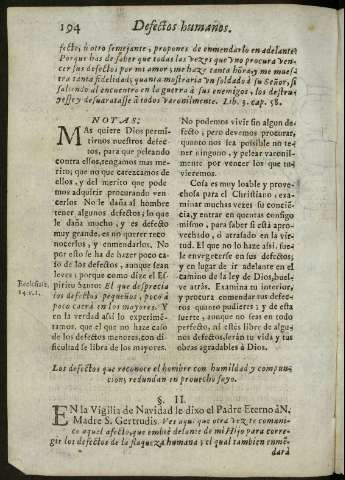 194 Defectos humanos.
fecto, ò otro semejante, propones de enmendarlo en adelante.
Porque has de saber que todas las vezes que vno procura ven-
cer sus defectos por mi amor, me haze tanta honra, y me mues-
tra tanta fidelidad, quanta mostraria vn soldado à su Señor, si
saliendo al encuentro en la guerra à sus enemigos, los destru-
yesse y desbaratasse à todos varonilmente. Lib. 3. cap. 58.
NOTAS:
MAs quiere Dios permi-
tirnos nuestros defec-
tos, para que peleando
contra ellos, tengamos mas me-
rito; que no que carezcamos de
ellos, y del merito que pode-
mos adquirir procurando ven-
cerlos No le daña al hombre
tener algunos defectos; lo que
le daña mucho, y es defecto
muy grande, es no querer reco-
nocerlos, y enmendarlos. No
por esto se ha de hazer poco ca-
so de los defectos, aunque sean
leves; porque como dize el Es-
piritu Santo: El que desprecia
los defectos pequeños, poco à
poco caerà en los mayores. Y
en la verdad assi lo experimē-
tamos, que el que no haze caso
de los defectos menores, con di-
ficultad se libra de los mayores.
Ecclesiast.
No podemos vivir sin algun de-
fecto; pero devemos procurar,
quanto nos sea possible no te-
ner ninguno, y pelear varonil-
mente por vencer los que tu-
vieremos.
Cosa es muy loable y prove-
chosa para el Christiano, exa-
minar muchas vezes su conciē-
cia, y entrar en quentas consigo
mismo, para saber si està apro-
vechado, ò atrasado en la vir-
tud. El que no lo haze assi, sue-
le envegeterse en sus defectos;
y en lugar de ir adelante en el
camino de la ley de Dios, buel-
ve atràs. Examina tu interior,
y procura comendar tus defec-
tos quanto pudieres; y de esta
fuerte, aunque no seas en todo
perfecto, ni estès libre de algu-
nos defectos, seràn tu vida y tus
obras agradables à Dios.
Los defectos que reconoce el hombre con humildad y compun-
cion, redundan en provecho suyo.
§. II.
EN la Vigilia de Navidad le dixo el Padre Eterno à N.
Madre S. Gertrudis. Ves aqui que otra vez te comuni-
co aquel afecto, que embiè delante de mi Hijo para corre-
gir los defectos de la flaqueza humana; el qual tambien enmē-
darà